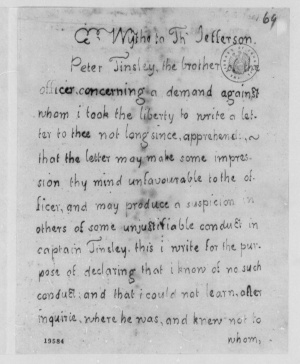 69
G. Wythe to Th' Jefferson.
Peter Tinsley, the brother of the
officer concerning a demand against
whom i took the liberty to write a let-
ter to thee not long since, apprehends
that the letter may make some impres-
sion thy mind unfavourable to the of-
ficer, and may produce a suspicion in
others of some unjustifiable conduct in
captain Tinsley. this i write for the pur-
pose of declaring that i know of no such
conduct; and that i could not learn, after
inquirie, where he was, and knew not to
19584
whom,